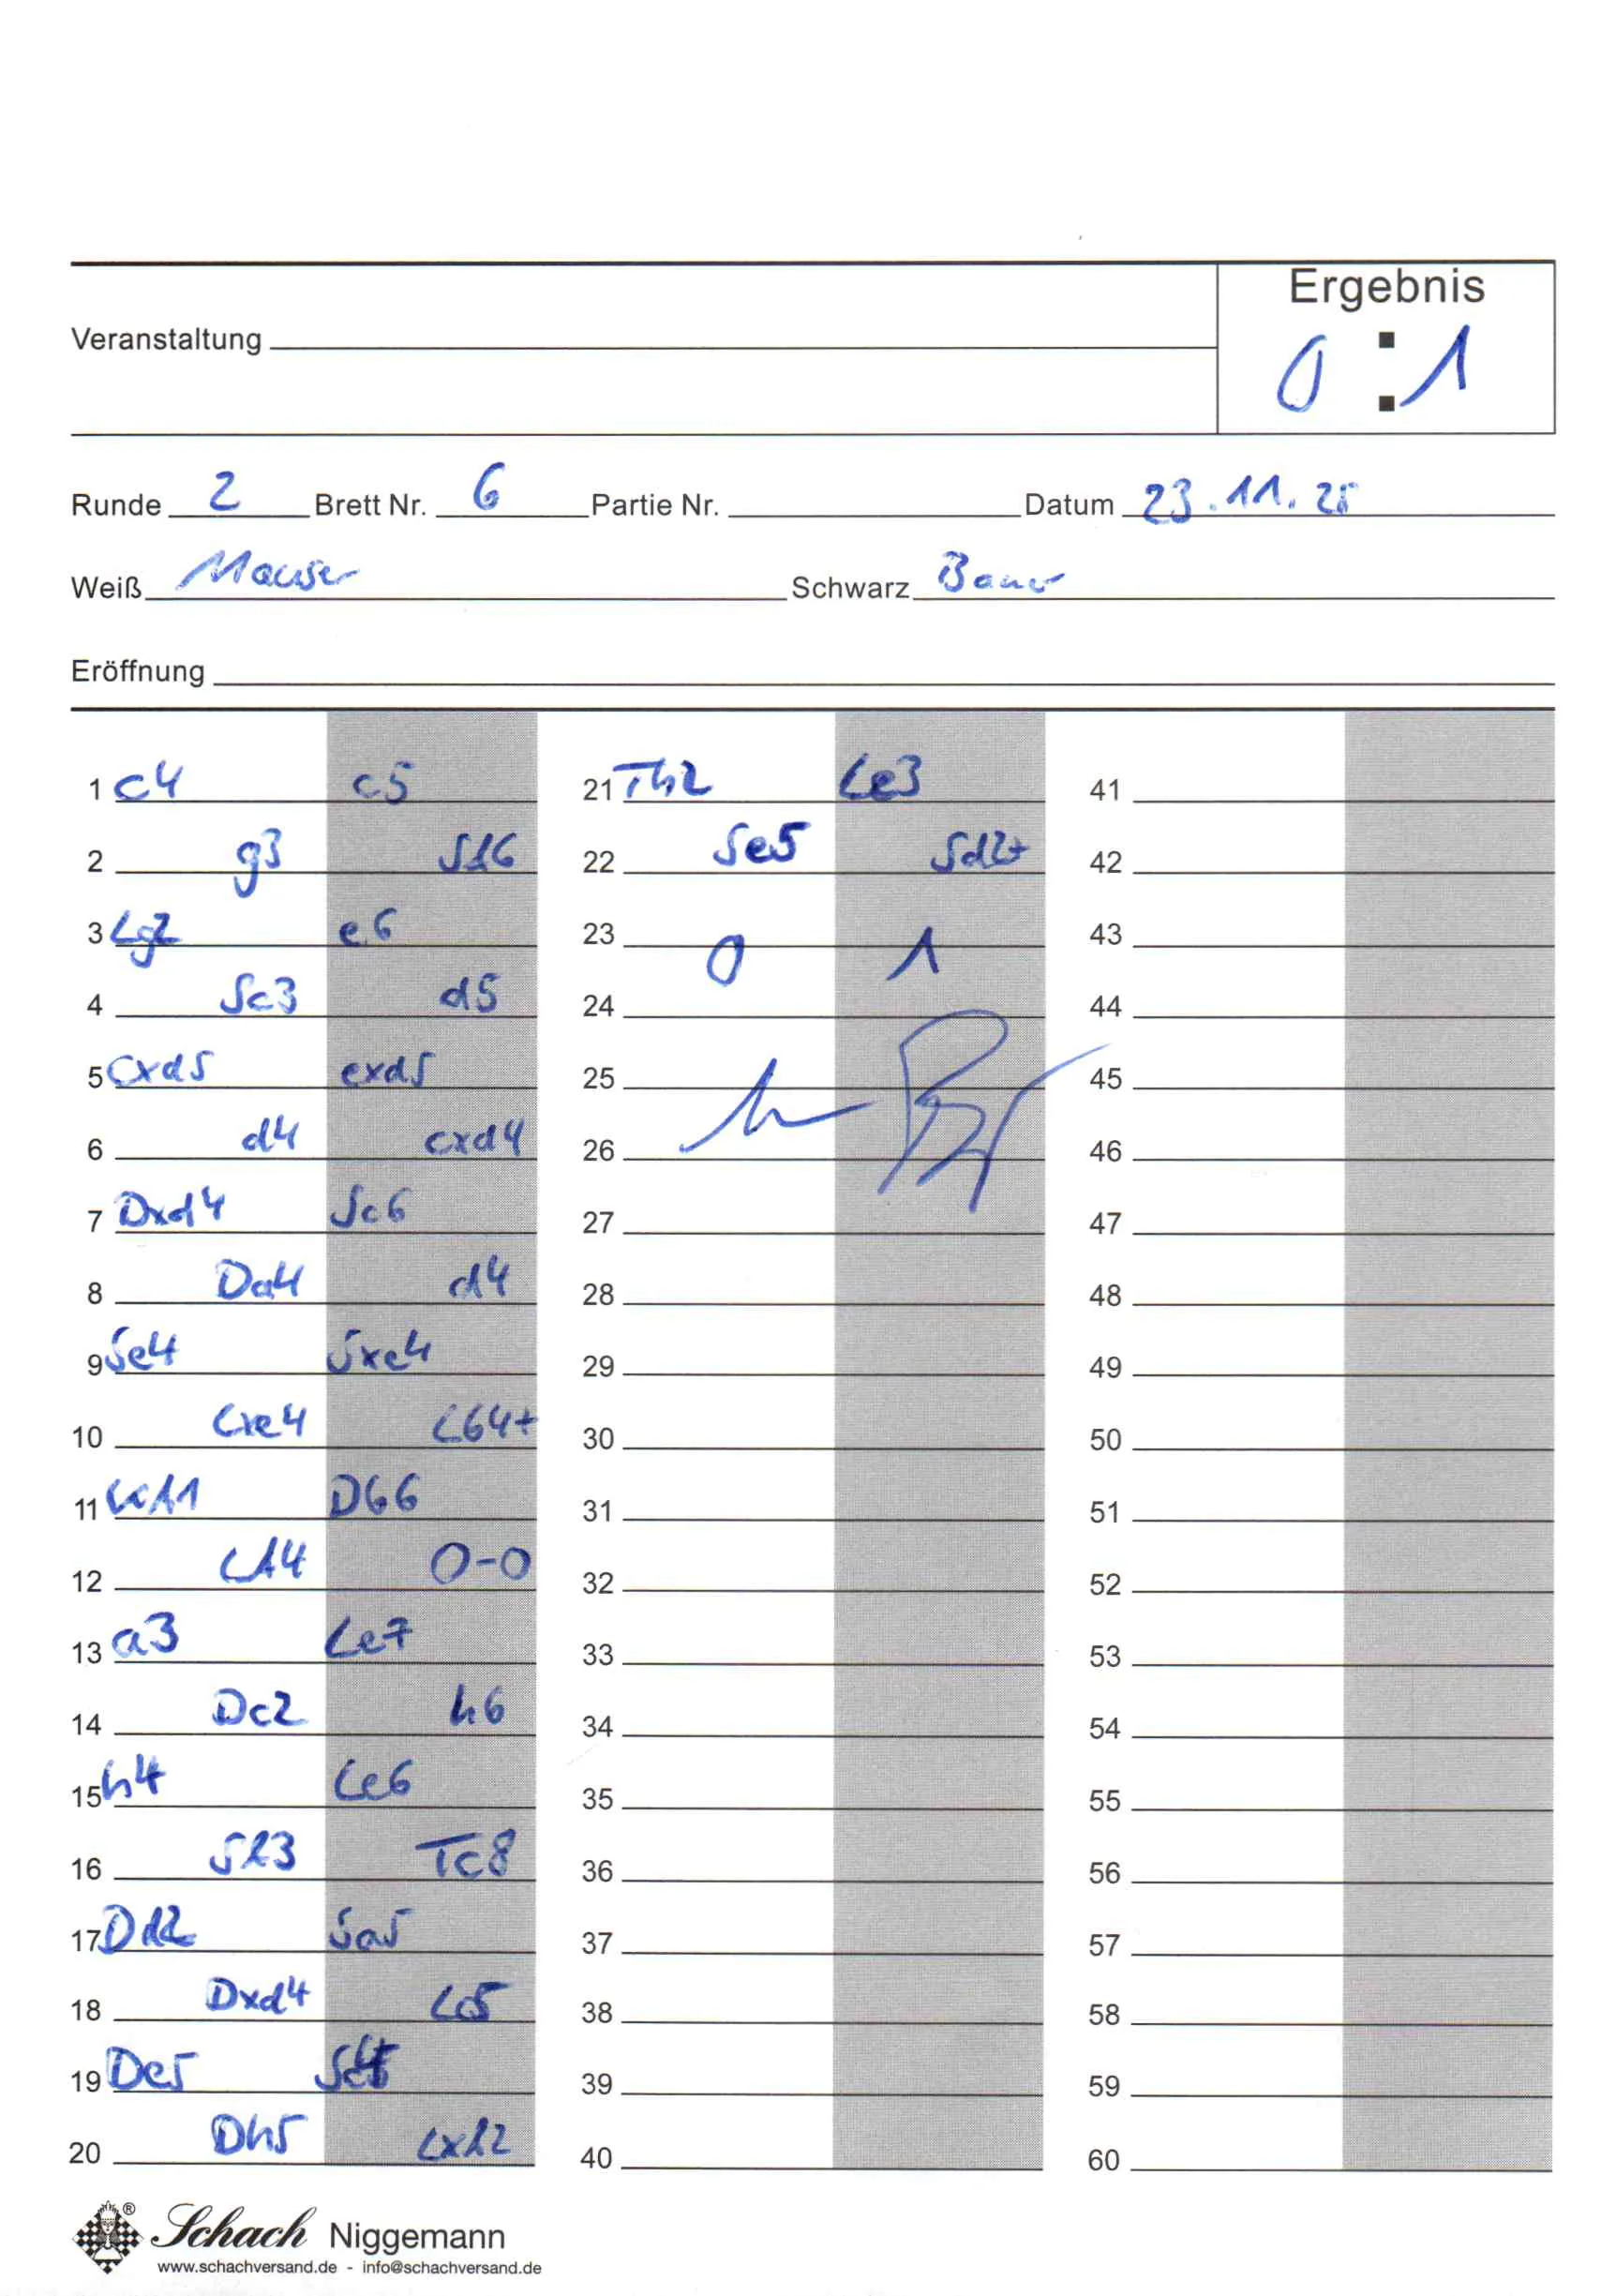 Ergebnis
Veranstaltung
0 : 1
Runde 2 Brett Nr. 6 Partie Nr. Datum 23.11.25
Weiß Mauser Schwarz Bauer
Eröffnung
1 c4 c5
2 g3 Sf6
3 Lg2 e6
4 Sc3 d5
5 cxd5 exd5
6 d4 cxd4
7 Dxd4 Sc6
8 Da4 d4
9 Se4 Sxe4
10 Lxe4 Lb4+
11 Kf1 Db6
12 Lf4 0-0
13 a3 Le7
14 Dc2 h6
15 h4 Le6
16 Sf3 Tc8
17 Dd2 Sa5
18 Dxd4 Lc5
19 De5 Sc4
20 Dh5 Lxf2
21 Th2 Le3
22 Se5 Sd2+
23 0 1
24
25
26
27
28
29
30
31
32
33
34
35
36
37
38
39
40
41
42
43
44
45
46
47
48
49
50
51
52
53
54
55
56
57
58
59
60
® Schach Niggemann
www.schachversand.de - info@schachversand.de